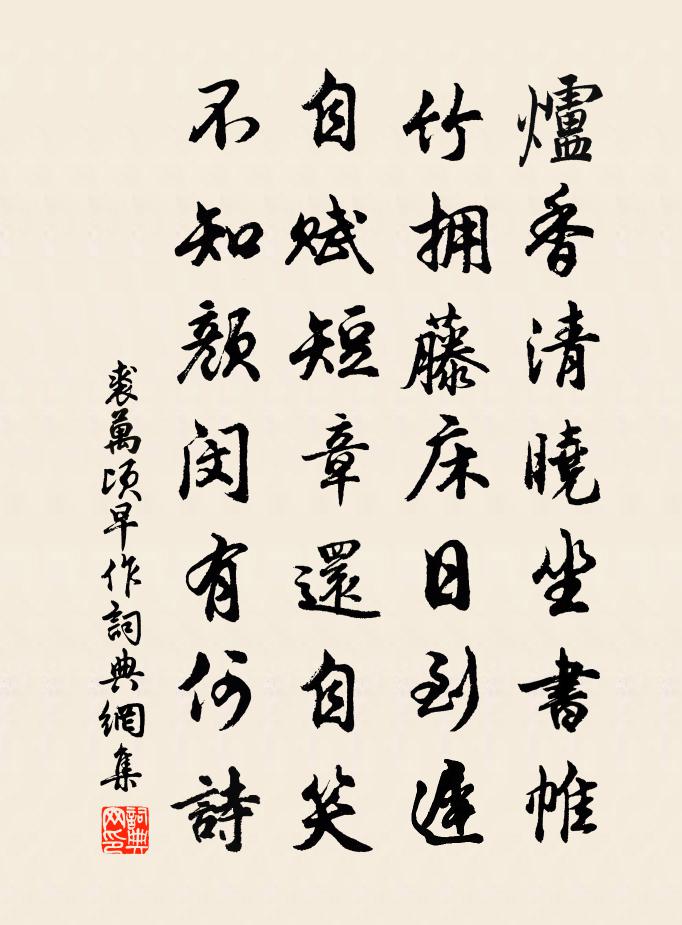 爐香清曉坐書帷
竹拥藤床日到遲
自赋短章還自笑
不知顏闵有何詩
裘萬頃早作詞典網集
詞典网印